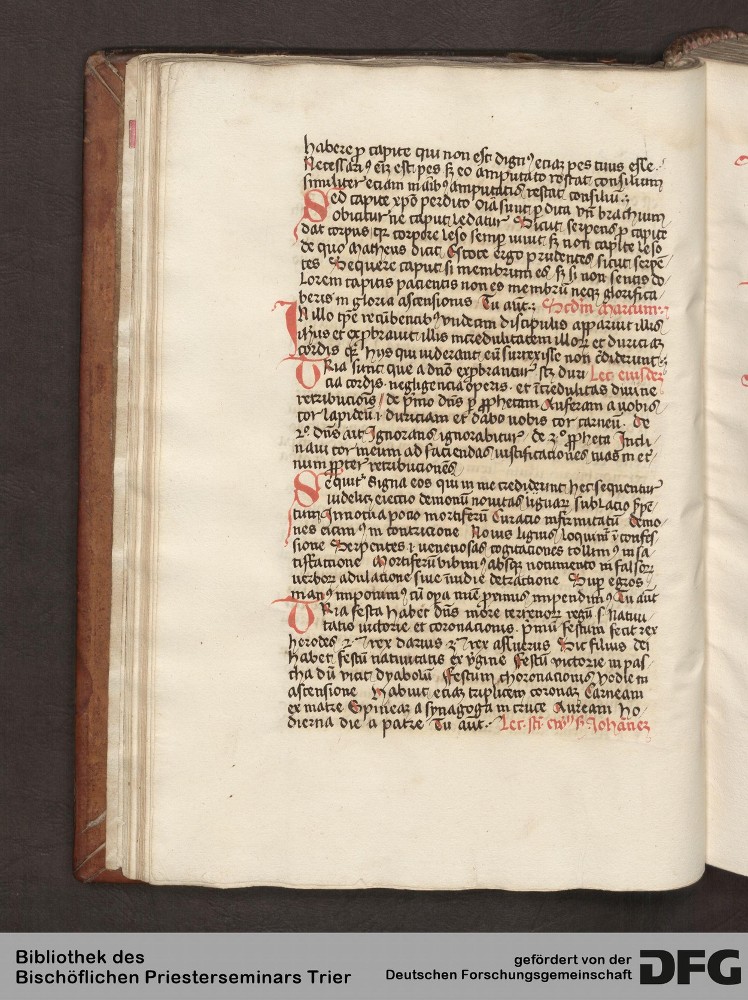 habere p capite qui non est dign⁹ etiaꝫ pes tuus esse
Necessari⁹ est pes sꝫ eo amputato restat consilium
similiter etiam manib⁹ amputatis restat consiliū
Sed capite xpō perdito oīa sunt p dita vn̄ brachium
obicitur ne caput ledatur Sicut serpens p capite
dat corpus qꝛ corpore leso semp viuit sꝫ non capite leso
de quo Matheus dicit Estote ergo prudentes sicut serpē
tes Sequere caput si membrum es sꝫ si non sentis do
lorem capitis pacientis non es membrū neqꝫ glorifica
beris in gloria ascensionis Tu aūt Scdm Marcum
In illo tpe recūbentib⁹ vndecim discipulis apparuit illis
ihus et expbrauit illis incredulitatem illoꝝ et duriciaꝫ
cordis qꝛ hys qui viderant eū surrexisse non crediderunt
Tria sunt que a dn̄o expbrantur scꝫ duri Lec eiusdeꝫ
cia cordis negligencia operis et īcredulitas diuine
retribucionis de pⁱmo dn̄s p ꝓphetam Auferam a vobis
cor lapideū i duriciam et dabo vobis cor carneū De
2⁰ dn̄s ait Ignorans ignorabitur de 3⁰ ꝓpheta Incli
naui cor meum ad faciendas iustificaciones tuas in eter
num ꝓpter retribucionē
Sequit⁰ Signa eos qui in me crediderint hec sequentur
videlicꝫ eiectio demonū nouitas linguaꝝ sublacio ſpē
tum mortiferū Curacio infirmitatū demo
nes eicim⁹ in contricione Nouis liguis loquim⁰ ī confes
sione Serpentes i venenosas cogitaciones tollim⁹ in sa
tisfactione Mortiferū bibim⁹ absqꝫ nocumento in falsoꝝ
verboꝝ adulatione siue inuidie detractione Sup egros
man⁹ imponim⁹ cū opa mīe primus impendim⁹ Tu aūt
Tria festa habet dn̄s more terrenoꝝ regū s natiui
tatis victorie et coronacionis pⁱmū festum fecit rex
herodes 2⁰ rex darius 3⁰ rex assuerus Sic filius dei
habet festū natiuitatis ex ỹgine Festū victorie in pas
cha dū vicit dyabolū Festum choronacionis hodie in
ascensione Habuit etiaꝫ triplicem coronaꝫ Carneam
ex matre Spineaꝫ a synagoga in cruce Auream ho
dierna die a patre Tu aūt Lec sci ewⁱⁱ s Johaneꝫ
Bibliothek des
Bischöflichen Priesterseminars Trier
gefördert von der
Deutschen Forschungsgemeinschaft DFG